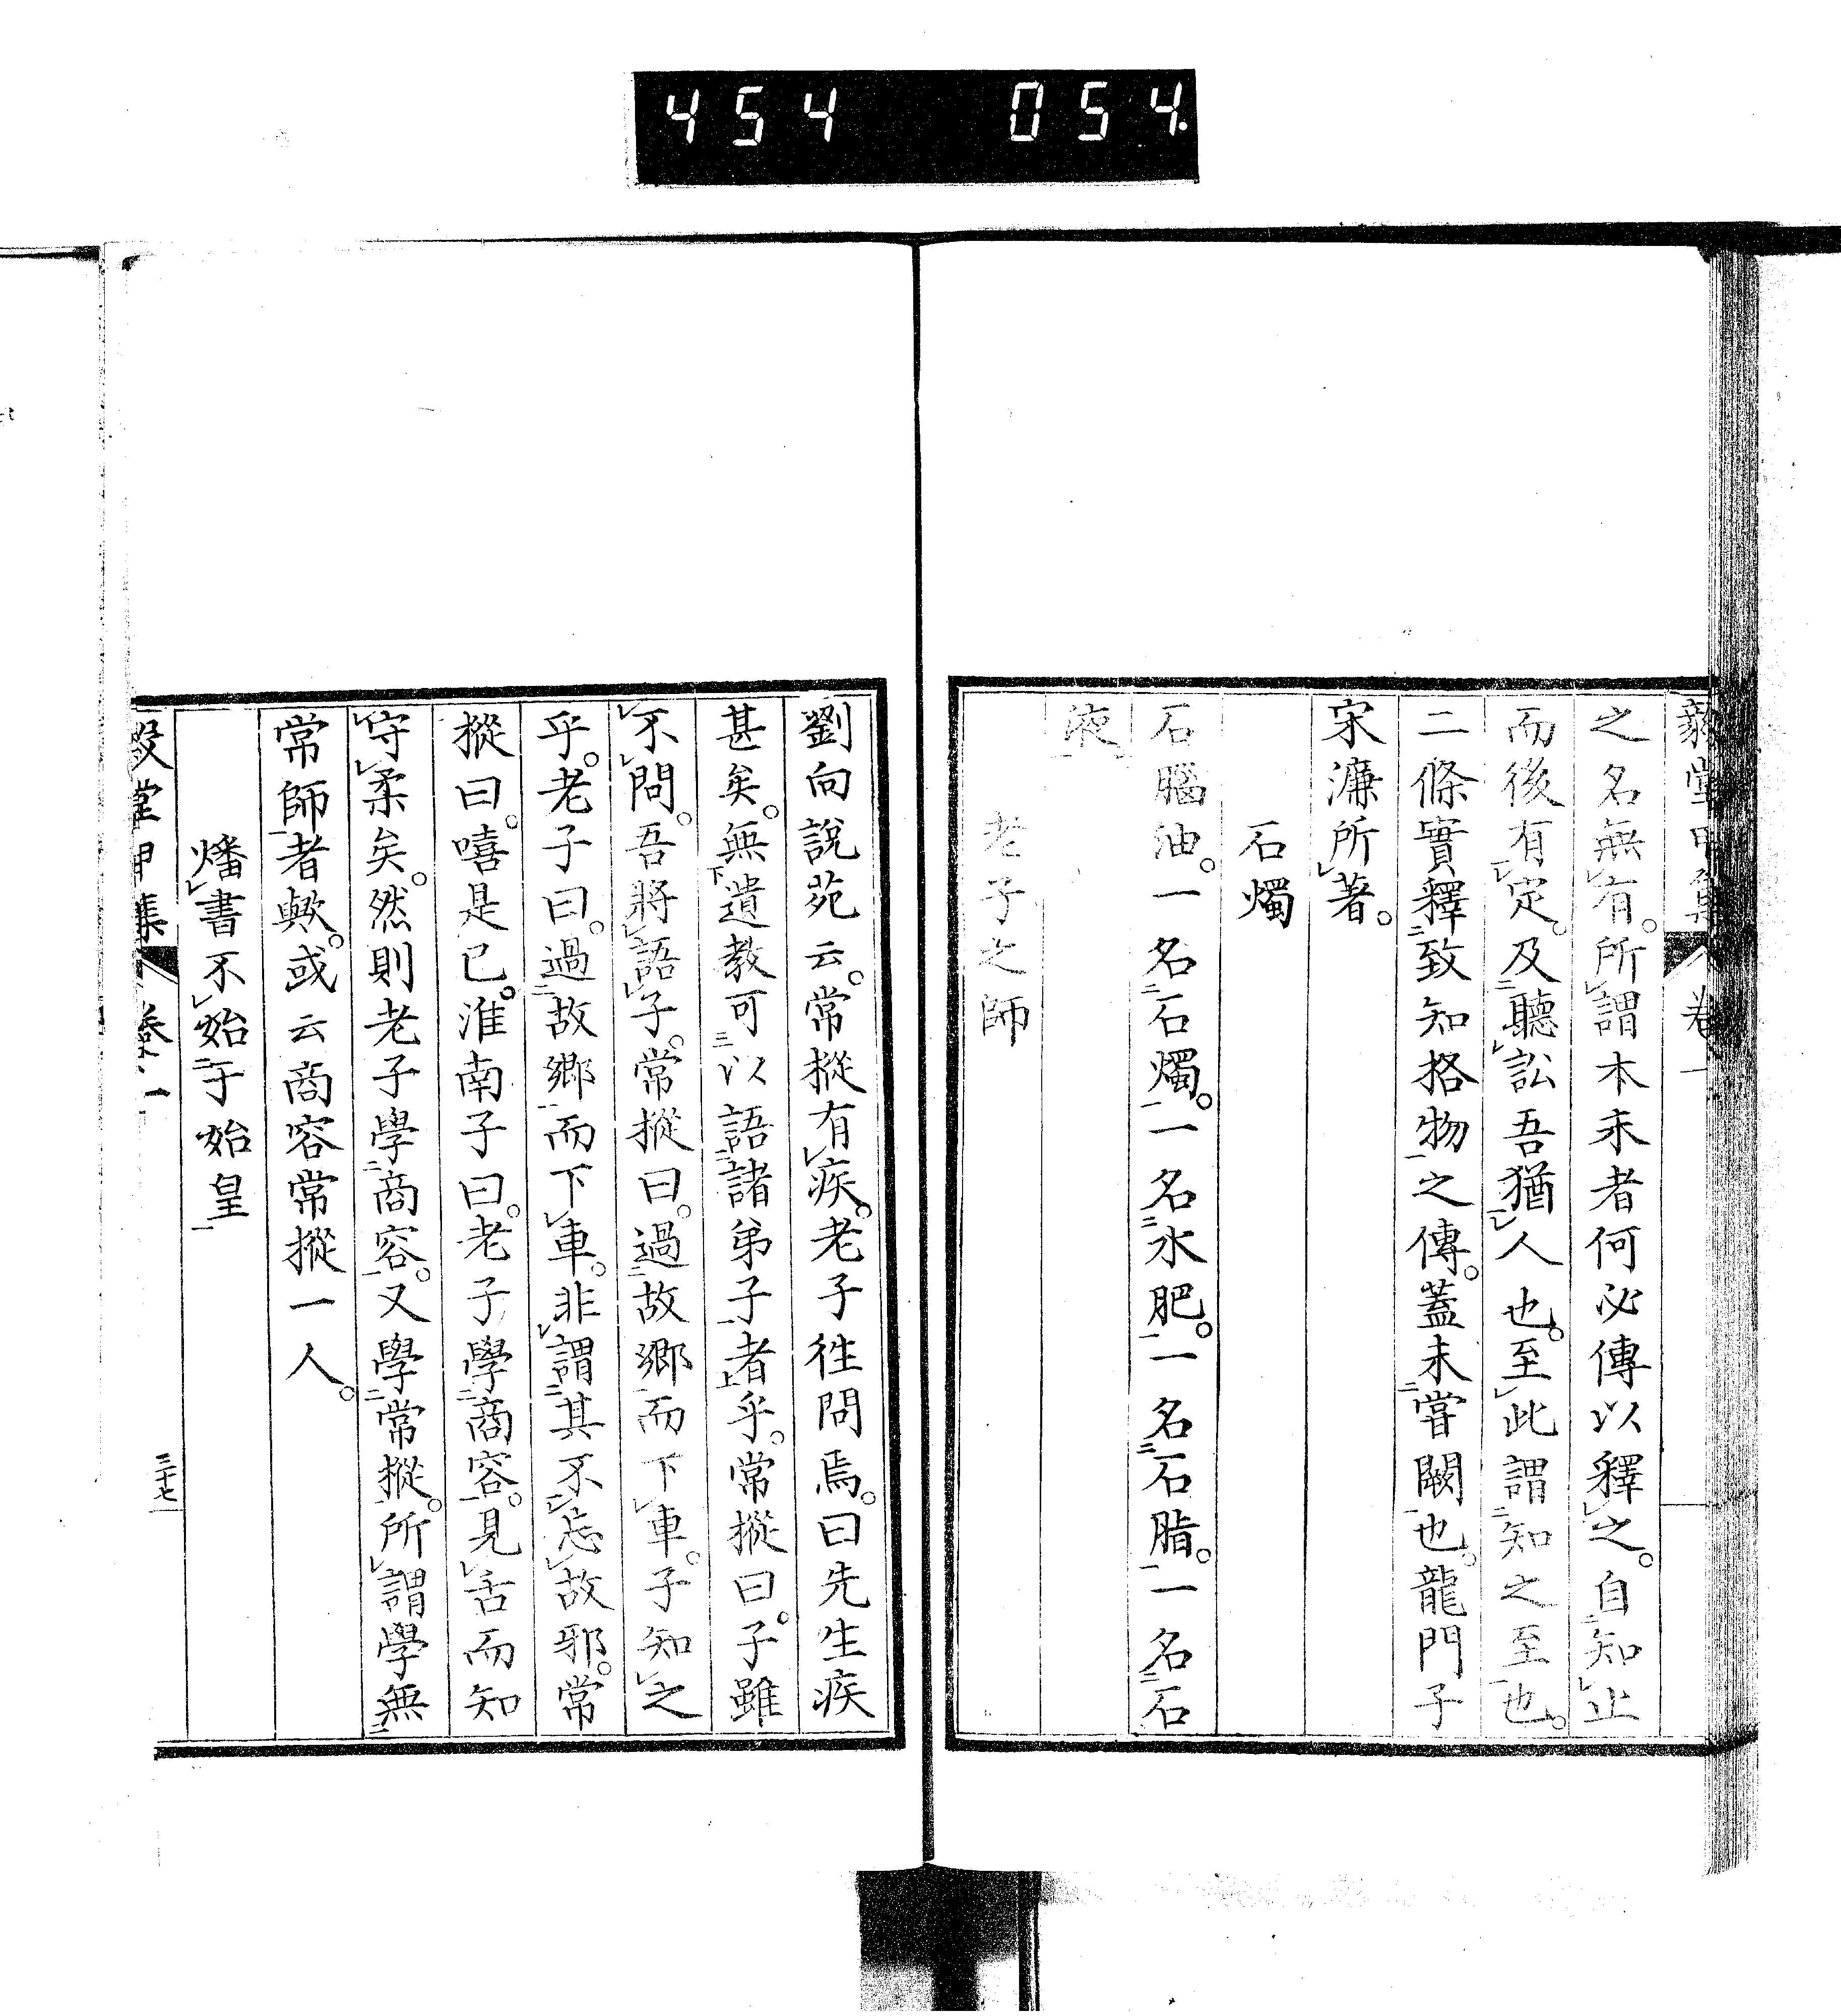 454 054.
毅堂甲集 卷一
之名無有。所謂本末者何必傳以釋之。自知止
而後有定。及聽訟吾猶人也。至此謂知之至也。
二條實釋致知格物之傳。蓋未嘗闕也。龍門子
宋濂所著。
石燭
石腦油。一名石燭。一名水肥。一名石脂。一名石
液
老子之師
劉向說苑云。常摐有疾。老子往問焉。曰先生疾
甚矣。無遺教可以語諸弟子者乎。常摐曰。子雖
不問。吾將語子。常摐曰。過故鄉而下車。子知之
乎。老子曰。過故鄉而下車。非謂其不忘故邪。常
摐曰。嘻是已。淮南子曰。老子學商容。見舌而知
守柔矣。然則老子學商容。又學常摐。所謂學無
常師者歟。或云商容常摐一人。
燔書不始于始皇
毅堂甲集 卷一 三十七